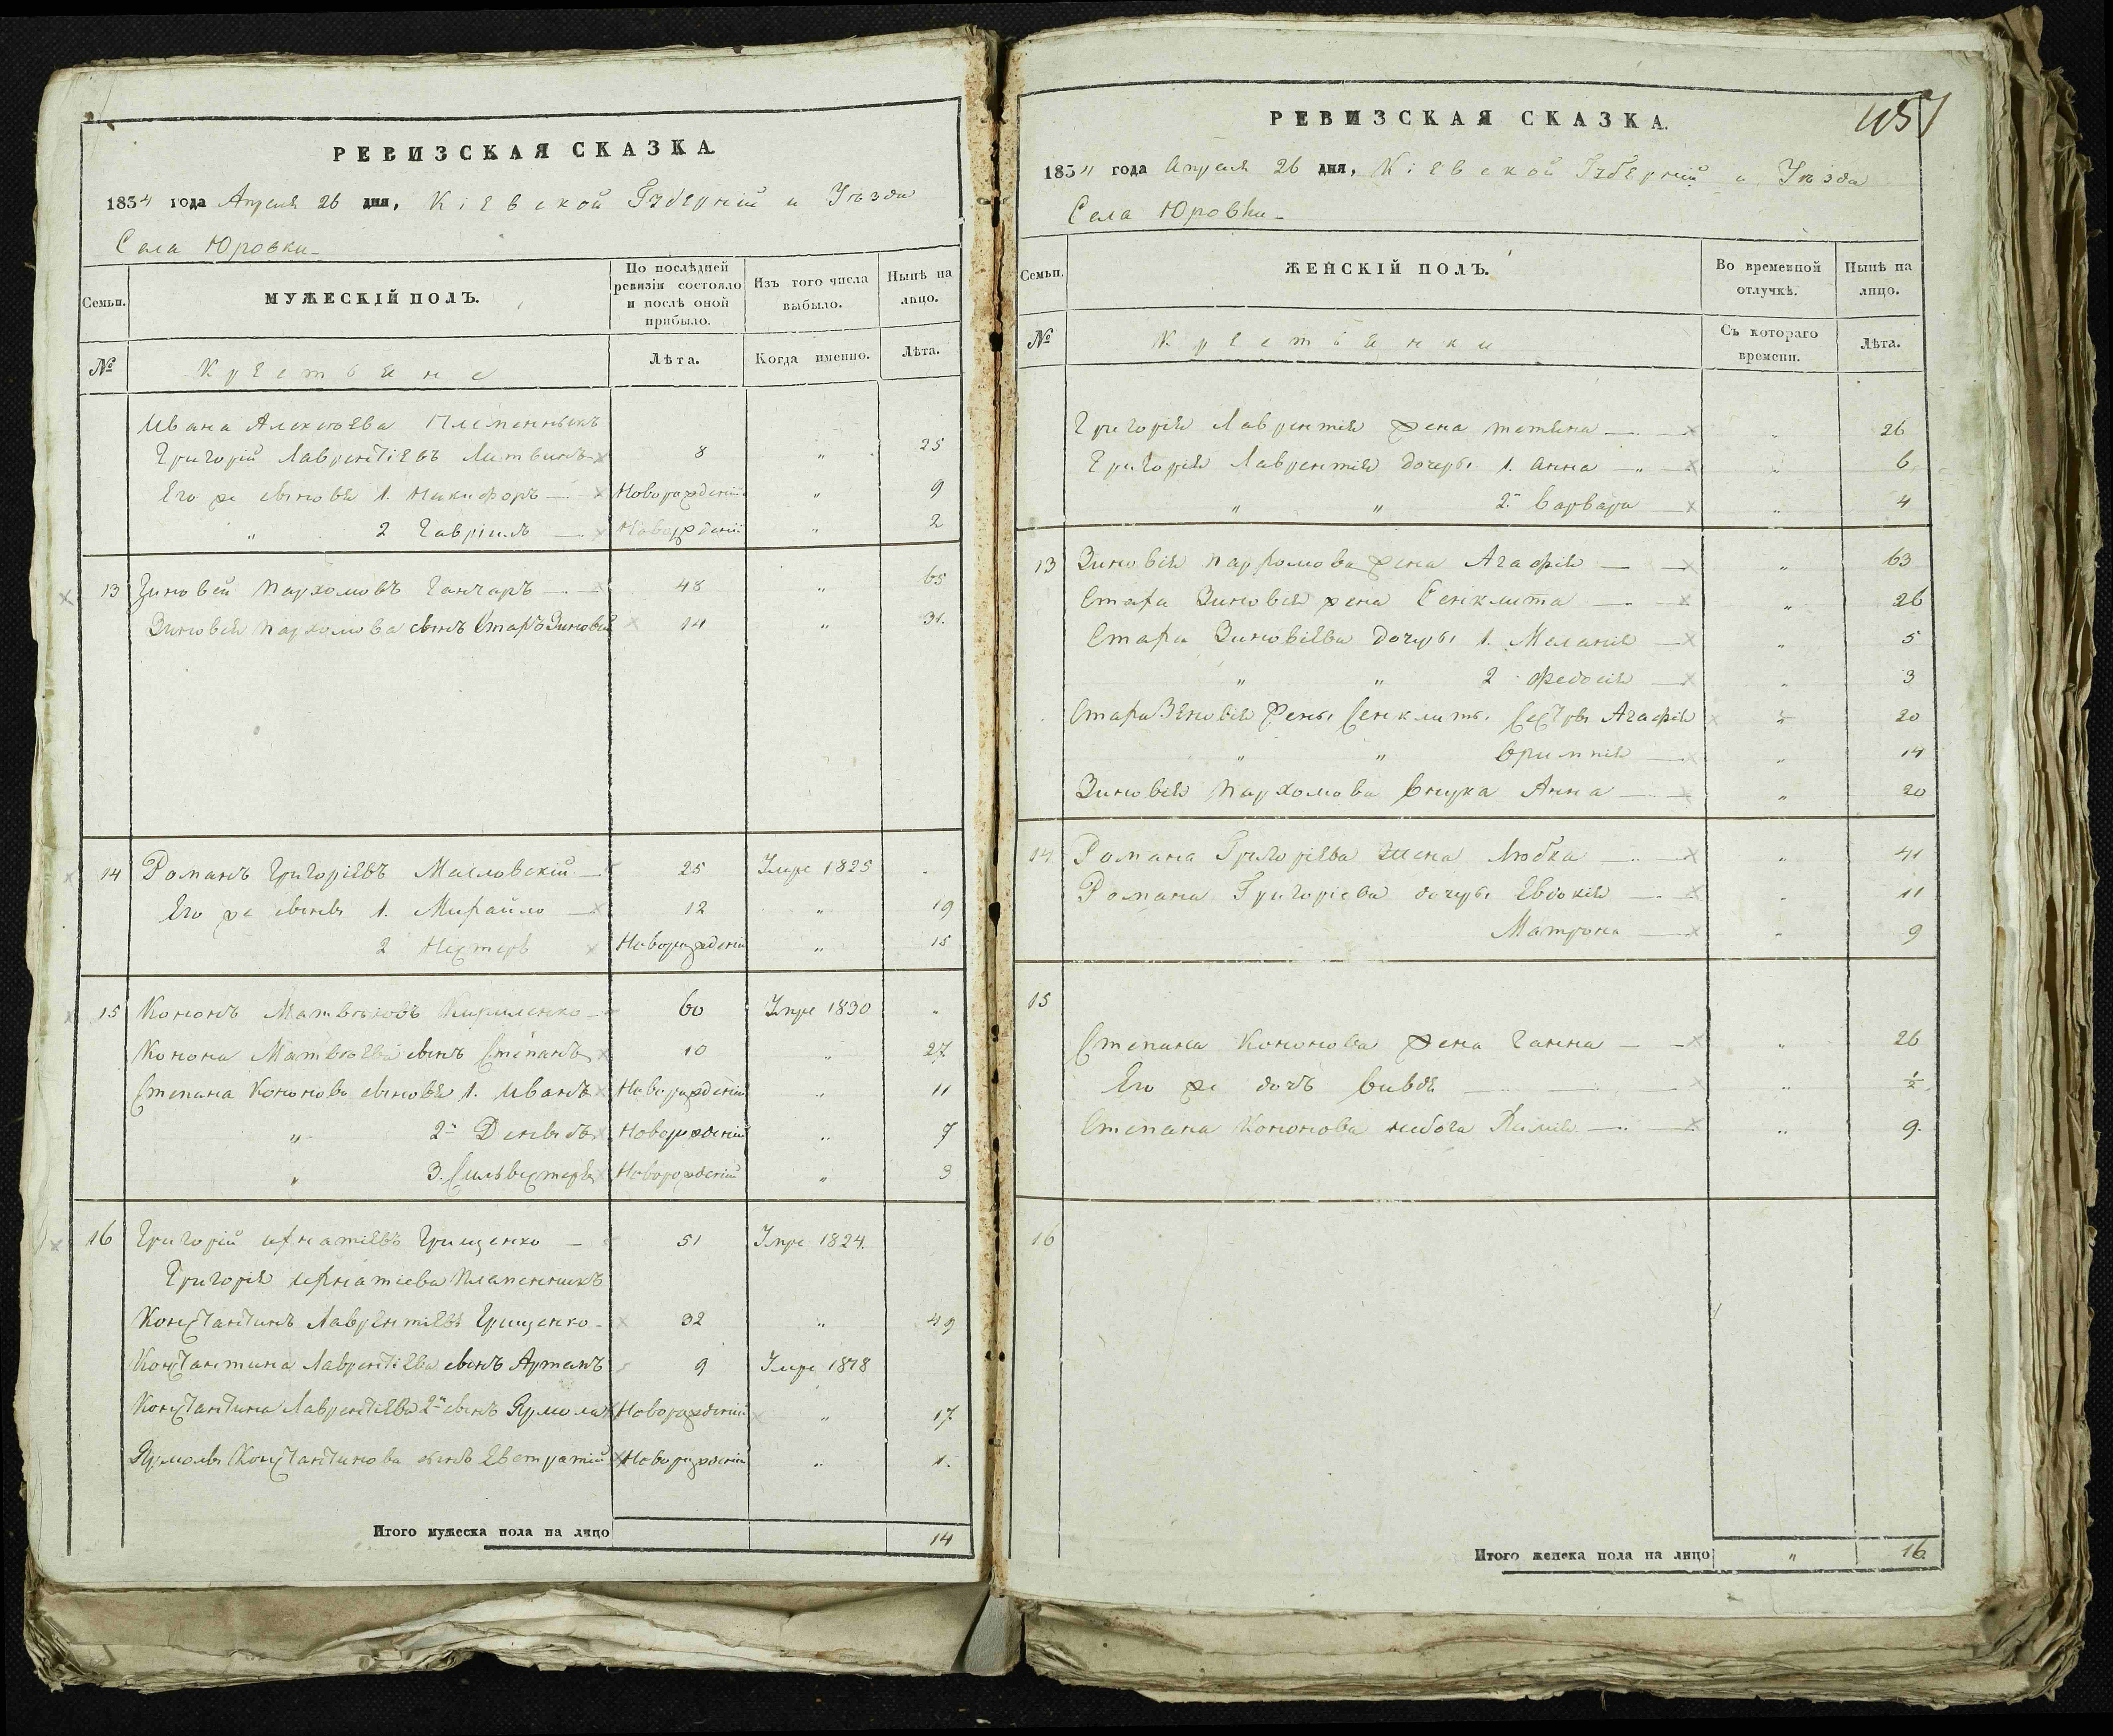 РЕВИЗСКАЯ СКАЗКА.
1834 года Апреля 26 дня, Кіевской Губерній и Уѣзда
Села Юровки
Семьи.
МУЖЕСКІЙ ПОЛЪ.
По послѣдней ревизіи состояло и послѣ оной прибыло.
Изъ того числа выбыло.
Нынѣ на лицо.
№
Крестьяне
Лѣта.
Когда именно.
Лѣта.
Ивана Алексѣева Племенныкъ
Григорій Лаврентіевъ Литвинъ 8 " 25
Его же сыновя 1. Никифоръ Новорожденій " 9
" 2 Гавріилъ Новорожденій " 2
13 Зиновей Пархомовъ Ганчаръ 48 " 65
Зиновея Пархомова сынъ Стахъ Зиновей 14 " 31.
14 Романъ Григоріевъ Масловскій 25 Умре 1825
Его же сыны 1. Михайло 12 " 19
2 Нестеръ Новорожденій " 15
15 Кононъ Матвѣіовъ Кириленко 60 Умре 1830
Конона Матвѣева сынъ Степанъ 10 " 27
Степана Кононова сыновя 1. Иванъ Новорожденій " 11
" 2й Денысъ Новорожденій " 7
" 3. Сильвестеръ Новорожденій " 3
16 Григорій Игнатіевъ Грищенко 51 Умре 1824.
Григорія Игнатіева Племенникъ
Константинъ Лаврентіевъ Грищенко 32 " 49
Константина Лаврентіева сынъ Артемъ 9 Умре 1818
Константина Лаврентіева 2й сынъ Ярмола Новорожденій " 17
Ярмолы Константинова сынъ Евстратій Новорожденій " 1.
Итого мужеска пола на лицо 14
РЕВИЗСКАЯ СКАЗКА.
1834 года Апреля 26 дня, Кіевской Губерній и Уѣзда
Села Юровки
Семьи.
ЖЕНСКІЙ ПОЛЪ.
Во временной отлучкѣ.
Нынѣ на лицо.
№
Крестьянки
Съ котораго времени.
Лѣта.
Григорія Лаврентія жена Тетяна " 26
Григорія Лаврентія дочеры 1. Анна " 6
" " 2. Варвара " 4
13 Зиновія Пархомова жена Агафія " 63
Стаха Зиновія жена Сенклита " 26
Стаха Зиновіева дочеры 1. Меланія " 5
" " 2 Федосія " 3
Стаха Зѣновія жены Сенклиты сестры Агафія " 20
" " Вримпія " 14
Зиновія Пархомова внука Анна " 20
14 Романа Григоріева Жена Любка " 41
Романа Григорієва дочеры Евдокія " 11
Матрона " 9
15
Степана Кононова жена Ганна " 26
Его же дочъ Вивдя " 1/2
Степана Кононова небога " 9.
16
Итого женска пола на лицо " 16